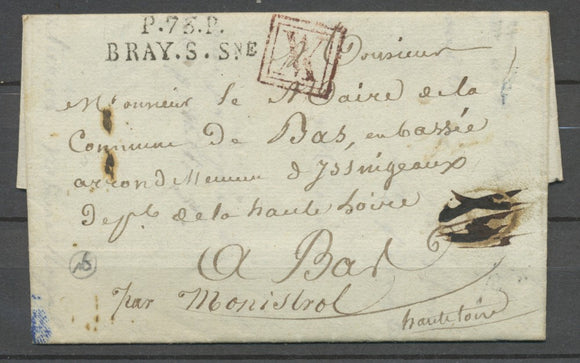 P.73.P.
BRAY.S.SNE
A Monsieur
Monsieur le Maire de la
Commune de Bas, en bassée
arrondissement d'Yssingeaux
Dept. de la haute Loire
A Bas
par Monistrol
haute Loire